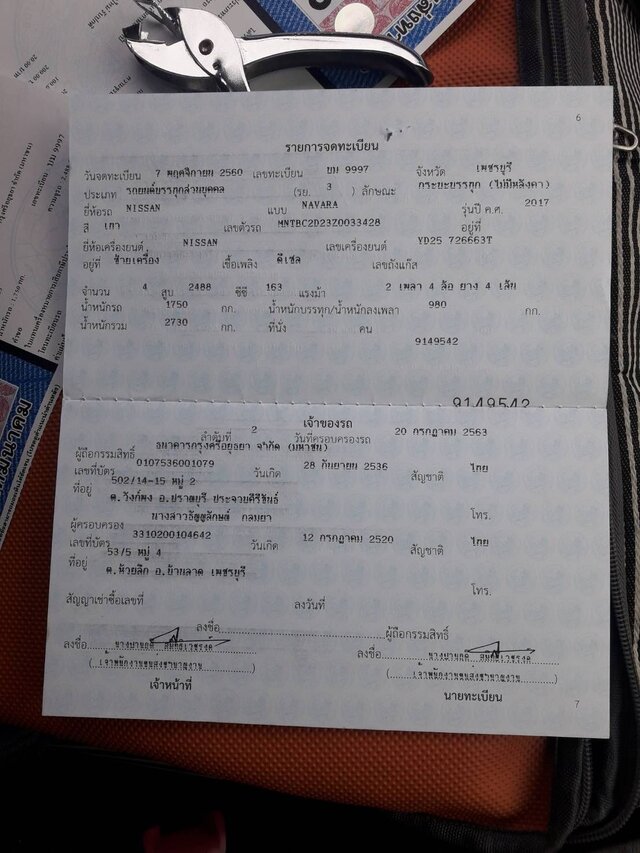 6
รายการจดทะเบียน
วันจดทะเบียน 7 พฤศจิกายน 2560 เลขทะเบียน ขม 9997 จังหวัด เพชรบุรี
ประเภท รถยนต์บรรทุกส่วนบุคคล (รย. 3 ) ลักษณะ กระบะบรรทุก (ไม่มีหลังคา)
ยี่ห้อรถ NISSAN แบบ NAVARA รุ่นปี ค.ศ. 2017
สี เทา เลขตัวรถ MNTBC2D23Z0033428 อยู่ที่
ยี่ห้อเครื่องยนต์ NISSAN เลขเครื่องยนต์ YD25 726663T
อยู่ที่ ซ้ายเครื่อง เชื้อเพลิง ดีเซล เลขถังแก๊ส
จำนวน 4 สูบ 2488 ซีซี 163 แรงม้า 2 เพลา 4 ล้อ ยาง 4 เส้น
น้ำหนักรถ 1750 กก. น้ำหนักบรรทุก/น้ำหนักลงเพลา 980 กก.
น้ำหนักรวม 2730 กก. ที่นั่ง คน
9149542
9149542
เจ้าของรถ
ลำดับที่ 2 วันที่ครอบครองรถ 20 กรกฎาคม 2563
ผู้ถือกรรมสิทธิ์ ธนาคารกรุงศรีอยุธยา จำกัด (มหาชน)
เลขที่บัตร 0107536001079 วันเกิด 28 กันยายน 2536 สัญชาติ ไทย
ที่อยู่ 502/14-15 หมู่ 2
ต.วังก์พง อ.ปราณบุรี ประจวบคีรีขันธ์
ผู้ครอบครอง นางสาวธัญลักษณ์ กลมยา โทร.
เลขที่บัตร 3310200104642 วันเกิด 12 กรกฎาคม 2520 สัญชาติ ไทย
ที่อยู่ 53/5 หมู่ 4
ต.ห้วยลึก อ.บ้านลาด เพชรบุรี
โทร.
สัญญาเช่าซื้อเลขที่ ลงวันที่
ลงชื่อ ผู้ถือกรรมสิทธิ์
ลงชื่อ ลงชื่อ
(เจ้าพนักงานขนส่งชำนาญงาน) (เจ้าพนักงานขนส่งชำนาญงาน)
เจ้าหน้าที่ นายทะเบียน
7